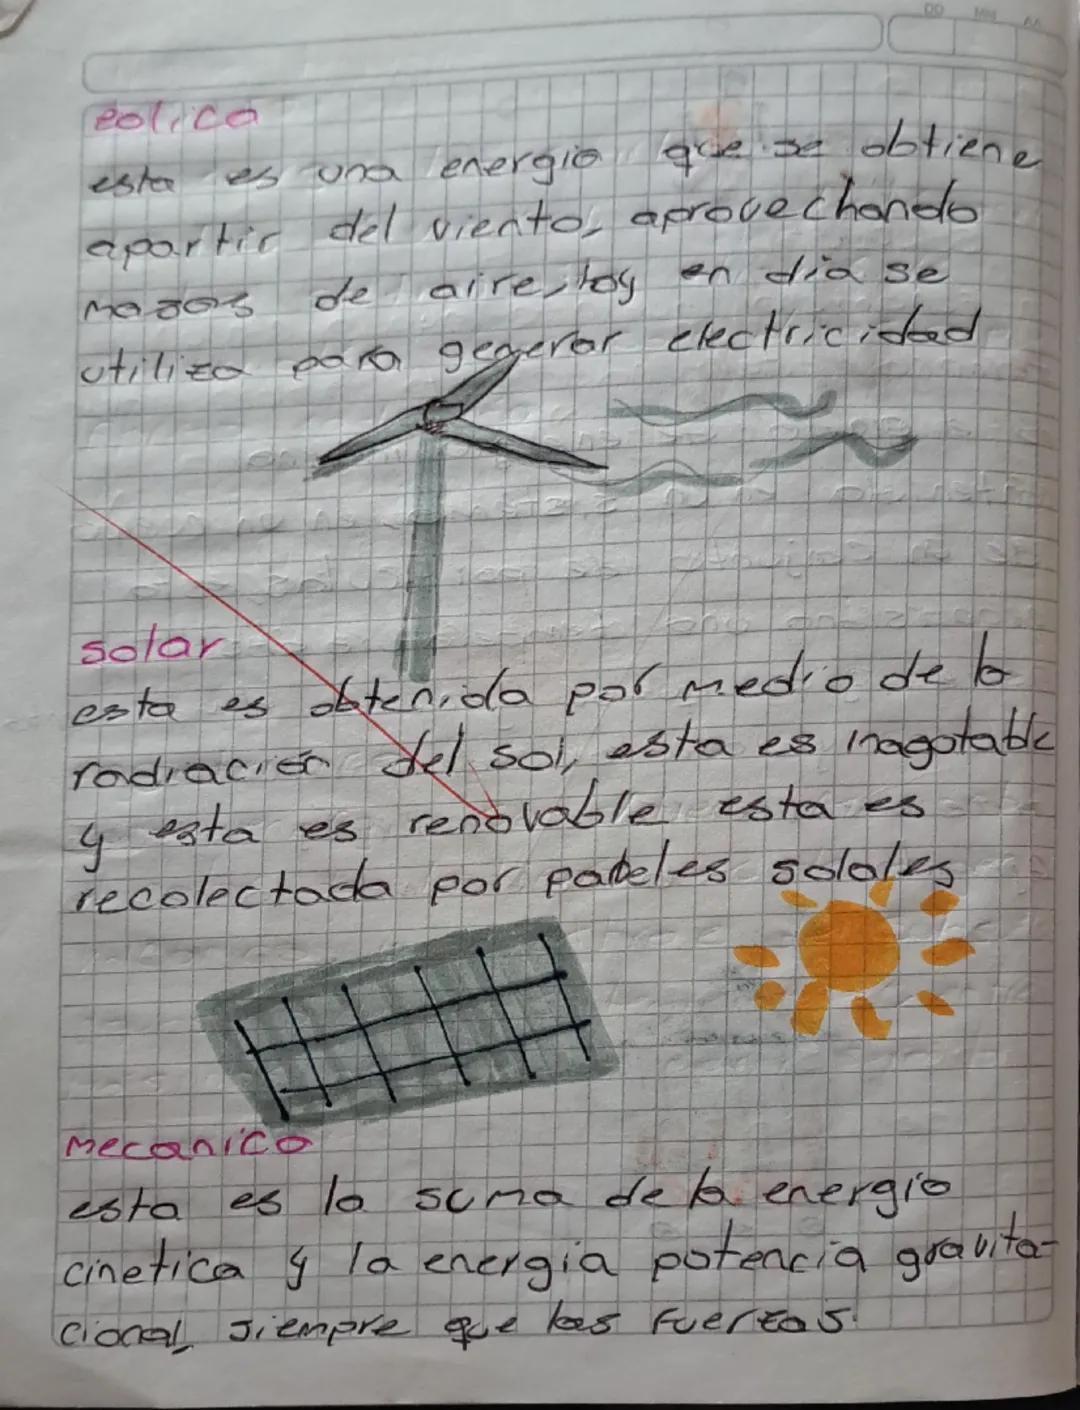 DD MM AA
eolica
esta es una energia que se obtiene
apartir del viento, aprovechando
masas de aire, hoy en dia se
utiliza para gegerar electricidad
solar
esta es obtenida por medio de la
radiación del sol, esta es inagotable
y esta es renovable esta es
recolectada por pateles solales
mecanico
esta es la suma de la energia
cinetica y la energia potencia gravita-
cional, siempre que las fuerzas.